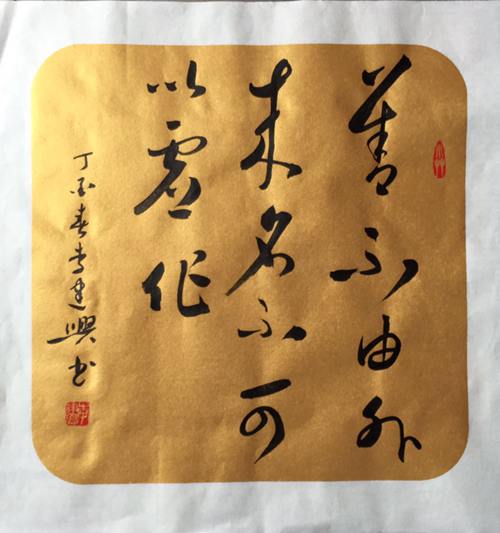 善不由外
来名不可
以虚作
丁酉春李建興书